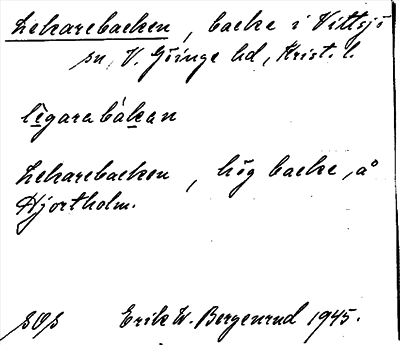 Lekarebacken, backe i Vittsjö
sn, V. Göinge hd, Krist. l.
lègarabákan
Lekarebacken, hög backe, å
Hjortholm.
SOS Erik W. Bergenrud 1945.